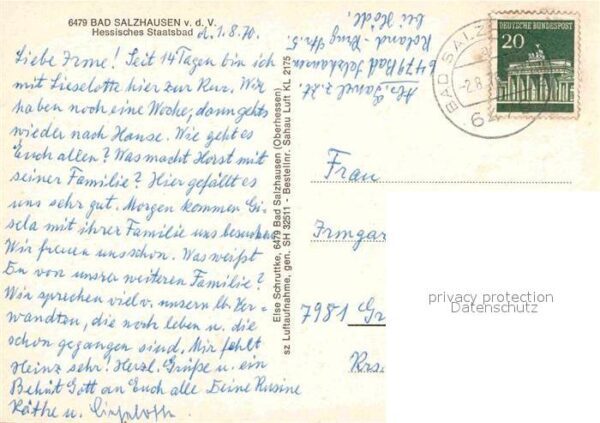 6479 BAD SALZHAUSEN v. d. V.
Hessisches Staatsbad
d. 1.8.70.
Liebe Irme! Seit 14 Tagen bin ich
mit Lieselotte hier zur Kur. Wir
haben noch eine Woche, dann gehts
wieder nach Hause. Wie geht es
Euch allen? Was macht Horst mit
seiner Familie? Hier gefällt es
uns sehr gut. Morgen kommen Gi-
sela mit ihrer Familie uns besuchen
Wir freuen uns schon. Was weißt
Du von unsrer weiteren Familie?
Wir sprechen viel v. unsern lb. Ver-
wandten, die noch leben u. die
schon gegangen sind. Mir fehlt
Heinz sehr! Herzl. Grüße u. ein
Behüt Gott an Euch alle Deine Kusine
Käthe u. Lieselotte
Else Schruttke, 6479 Bad Salzhausen (Oberhessen)
sz Luftaufnahme, gen. SH 32511 - Bestellnr. Sahau Luft KL 2175
z. Zt.
6479 Bad Salzhausen
Roland-Krug Str. 5.
bei Hödl,
BAD SALZ
-2.8.
DEUTSCHE BUNDESPOST
20
Frau
Irmgar
7981 Gr
Krs.
privacy protection
Datenschutz